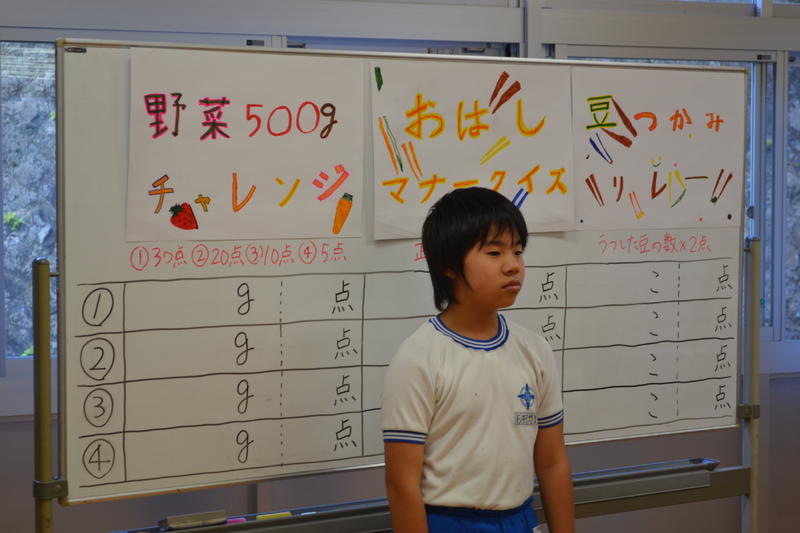 野菜500g
チャレンジ
おはし
マナークイズ
豆つかみ
リレー
①30点②20点③10点④5点
正
うつした豆の数×2点
① g 点 点 こ 点
② g 点 点 こ 点
③ g 点 こ 点
④ g 点 こ 点